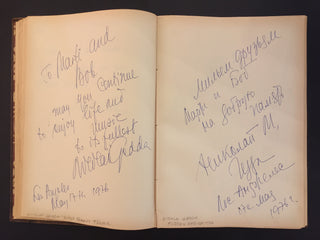 To Madi and
Bob
may you continue
to enjoy life and
music
to its fullest
Nicolai Gedda
Los Angeles
May 17th, 1976
Милым друзьям
Мади и Боб
на добрую память
Николай М.
Гедда
Лос Анджелес
мая
1976 г.